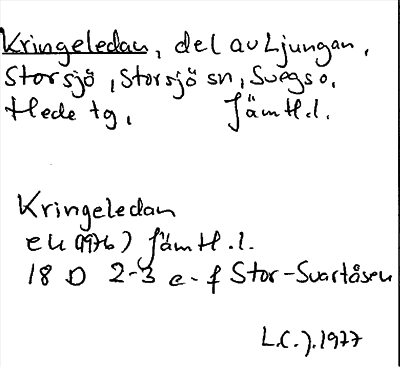 Kringeledan, del av Ljungan,
Storsjö, Storsjö sn, Svegs o.
Hede tg, Jämtl.l.
Kringeledan
ek (1976) Jämtl.l.
18 D 2-3 e-f Stor-Svartåsen
L.C.J. 1977